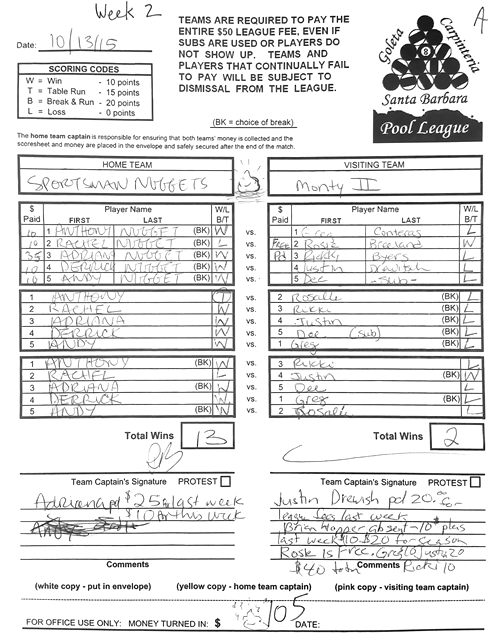 Week 2
A
Date: 10/13/15
TEAMS ARE REQUIRED TO PAY THE
ENTIRE $50 LEAGUE FEE, EVEN IF
SUBS ARE USED OR PLAYERS DO
NOT SHOW UP. TEAMS AND
PLAYERS THAT CONTINUALLY FAIL
TO PAY WILL BE SUBJECT TO
DISMISSAL FROM THE LEAGUE.
SCORING CODES
W = Win - 10 points
T = Table Run - 15 points
B = Break & Run - 20 points
L = Loss - 0 points
Goleta Carpinteria
Santa Barbara
Pool League
(BK = choice of break)
The home team captain is responsible for ensuring that both teams' money is collected and the
scoresheet and money are placed in the envelope and safely secured after the end of the match.
HOME TEAM VISITING TEAM
SPORTSMAN NUGGETS Monty II
$ Paid Player Name FIRST LAST W/L B/T $ Paid Player Name FIRST LAST W/L B/T
10 1 ANTHONY NUGGET (BK) W vs. 1 Greg Contreras L
10 2 RACHEL NUGGET (BK) L vs. Free 2 Rosie Breeland W
35 3 ADRIANA NUGGET (BK) W vs. Pd 3 Byers L
10 4 DERRICK NUGGET (BK) W vs. 4 Justin L
10 5 ANDY NUGGET (BK) W vs. 5 Dee -sub- L
1 ANTHONY T vs. 2 Rosalie (BK) L
2 RACHEL W vs. 3 Rikki (BK) L
3 ADRIANA W vs. 4 Justin (BK) L
4 DERRICK W vs. 5 Dee (sub) (BK) L
5 ANDY W vs. 1 Greg (BK) L
1 ANTHONY (BK) W vs. 3 Rikki L
2 RACHEL L vs. 4 Justin (BK) W
3 ADRIANA (BK) W vs. 5 Dee L
4 DERRICK W vs. 1 Greg (BK) L
5 ANDY (BK) W vs. 2 Rosalie L
Total Wins 13 Total Wins 2
Team Captain's Signature PROTEST Team Captain's Signature PROTEST
Adriana pd $25 last week
$10 for this week
Justin pd 20.00 for
league fees last week
Brian Hopper absent - 10$ plus
last week $10 - $20 for season
Rosie is Free. Greg 10 Justin 20
$40 total Ricki 10
Comments Comments
(white copy - put in envelope) (yellow copy - home team captain) (pink copy - visiting team captain)
FOR OFFICE USE ONLY: MONEY TURNED IN: $ 105 DATE: